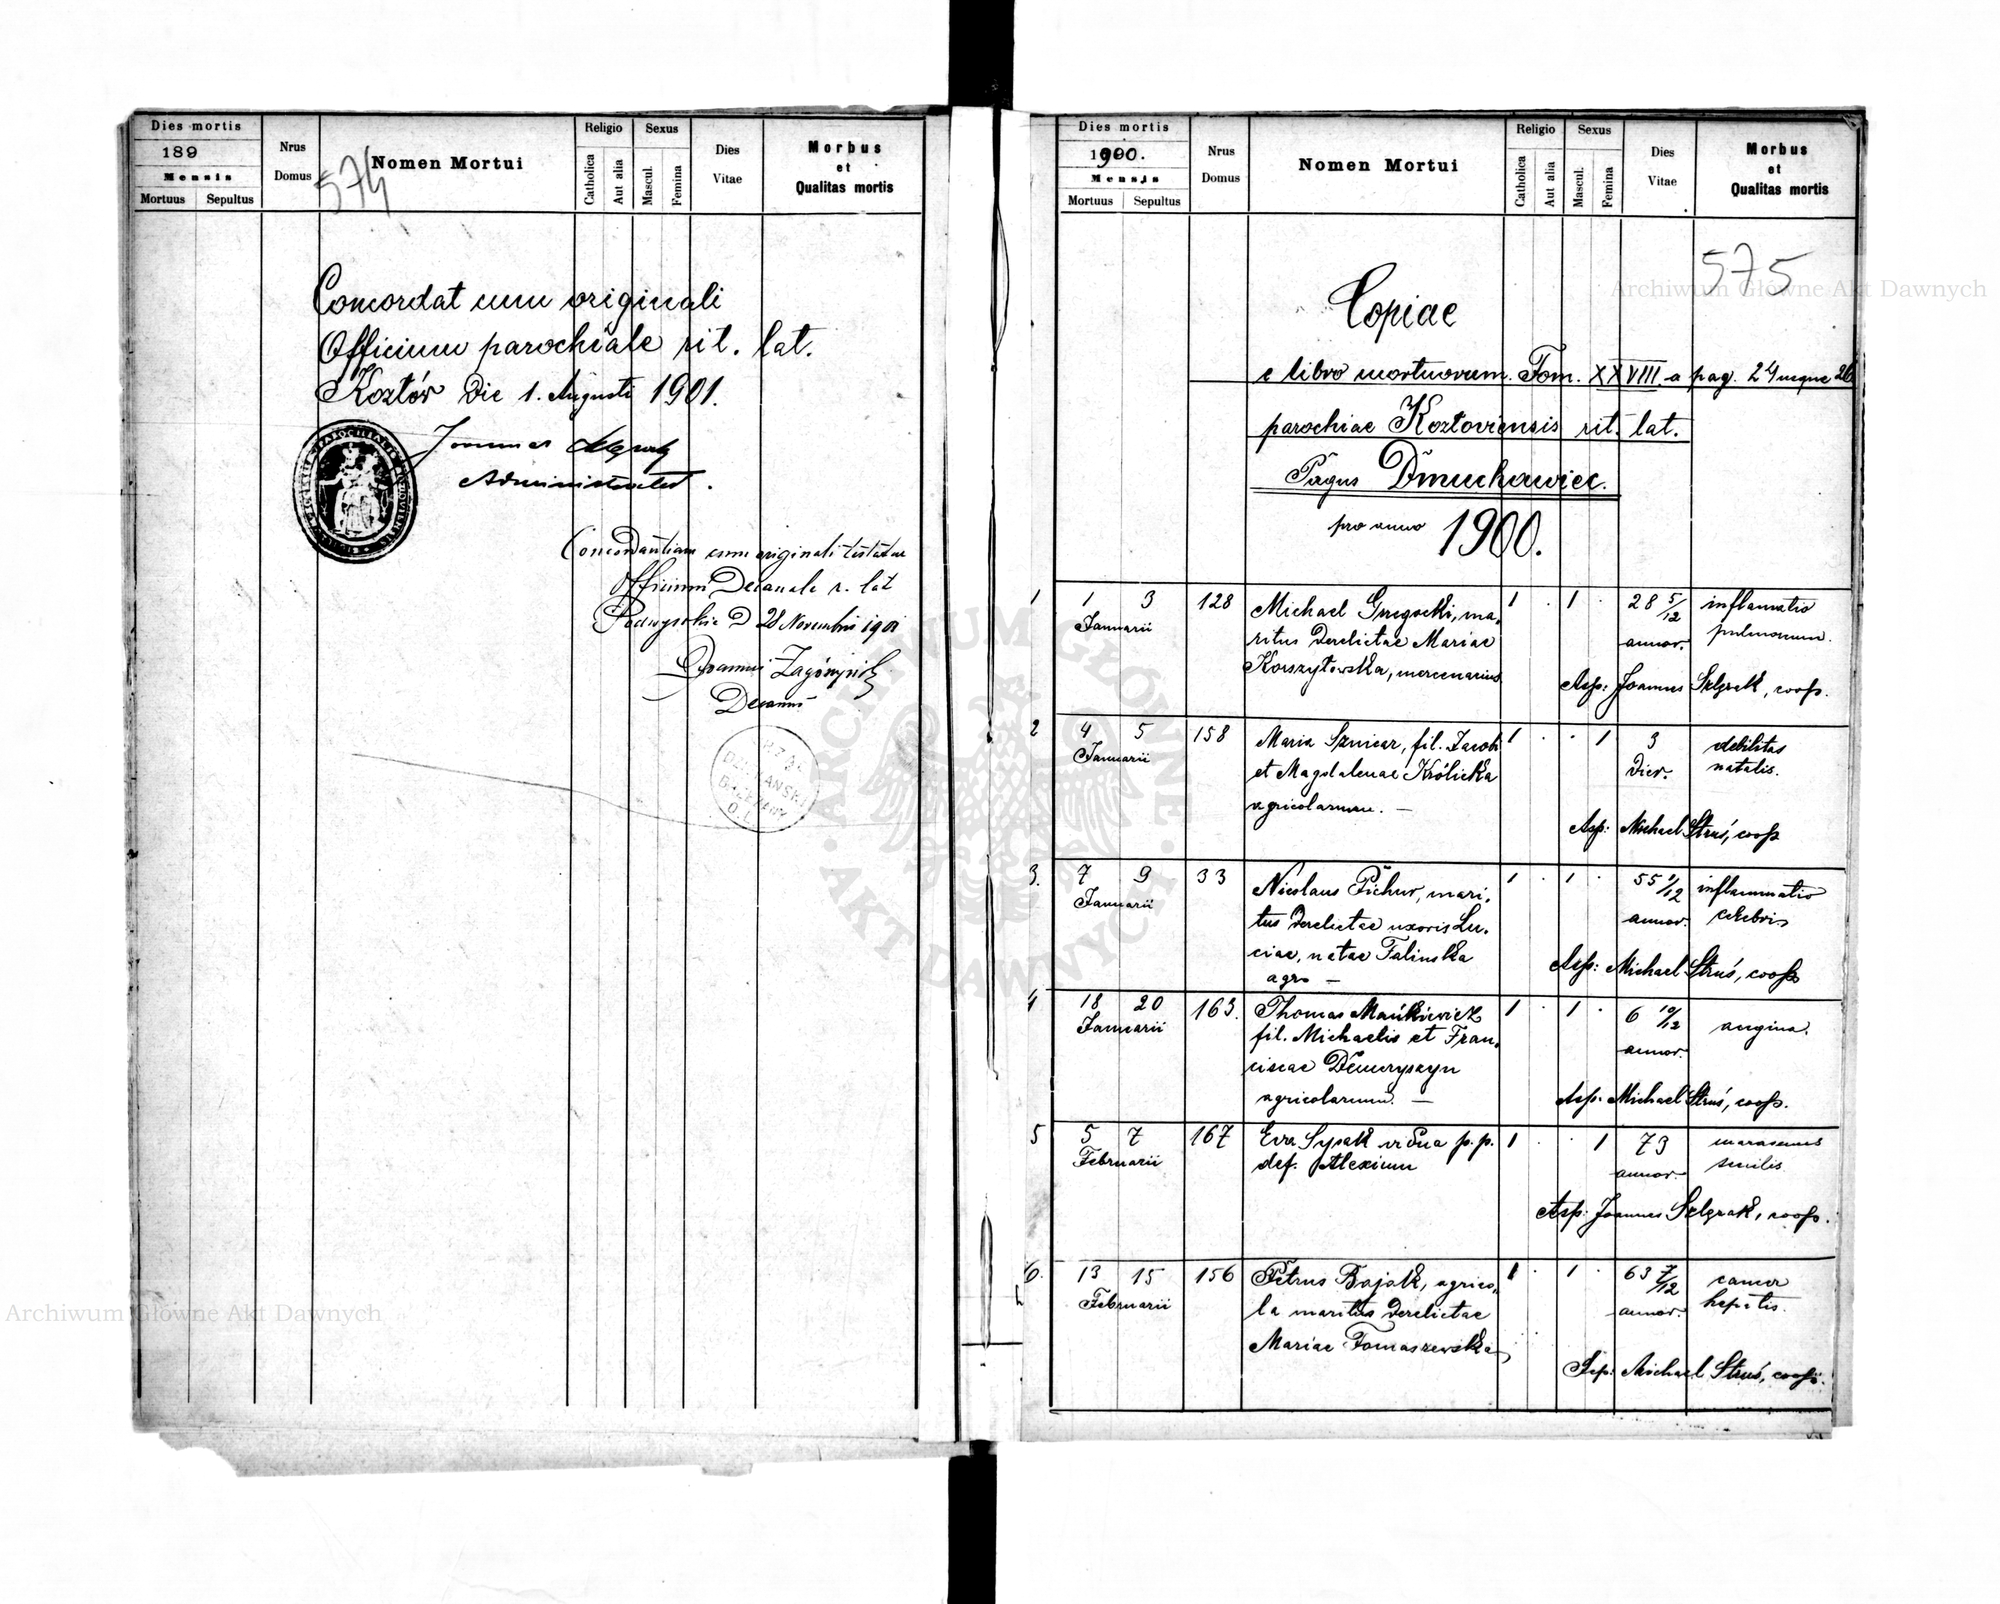 Dies mortis
189
Mensis
Mortuus Sepultus
Nrus
Domus
Nomen Mortui
Religio
Catholica
Aut alia
Sexus
Mascul.
Femina
Dies
Vitae
Morbus
et
Qualitas mortis
574
Concordat cum originali
Officium parochiale rit. lat.
Kozłów Die 1. Augusti 1901.
Joannes
Administrator.
Concordantiam cum originali testatur
Officium Decanale r. lat
D 28 Novembris 1901
Joannes
Decanus
Dies mortis
1900.
Mensis
Mortuus Sepultus
Nrus
Domus
Nomen Mortui
Religio
Catholica
Aut alia
Sexus
Mascul.
Femina
Dies
Vitae
Morbus
et
Qualitas mortis
575
Archiwum Główne Akt Dawnych
Copiae
e libro mortuorum. Tom. XXVIII a pag. 24 usque 26
parochiae Kozłoviensis rit. lat.
Pagus Dmuchawiec.
pro anno 1900.
1 1 3 128 Michael Gregocki, ma- 1 . 1 . 28 5/12 inflamatio
Januarii ritus derelictae Mariae annor. pulmonum.
Korszytowska, mercenarius
Asp: Joannes Szlgrak, coop.
2 4 5 158 Maria Sznicar, fil. Jacobi 1 . . 1 3 debilitas
Januarii et Magdalenae Królicka dier. natalis.
agricolarum. —
Asp: Michael Struś, coop
3. 7 9 33 Nicolaus Pichur, mari- 1 . 1 . 55 1/12 inflammatio
Januarii tus derelictae uxoris Lu- annor. cerebri
ciae, natae Falinska
agr. —
Asp: Michael Struś, coop
4 18 20 163. Thomas Mańkiewicz 1 . 1 . 6 10/12 angina.
Januarii fil. Michaelis et Fran- annor.
ciscae
agricolarum. —
Asp. Michael Struś, coop.
5 5 7 167 Eva Sysak vidua p. p. 1 . . 1 73 marasmus
Februarii def. Alexium annor. senilis
Asp: Joannes Szlgrak, coop.
6. 13 15 156 Petrus Bajak, agrico- 1 . 1 . 63 7/12 cancer
Februarii la maritus derelictae annor. hepatis.
Mariae Tomaszewska
Asp: Michael Struś, coop.
ARCHIWUM GŁÓWNE
AKT DAWNYCH
Archiwum Główne Akt Dawnych